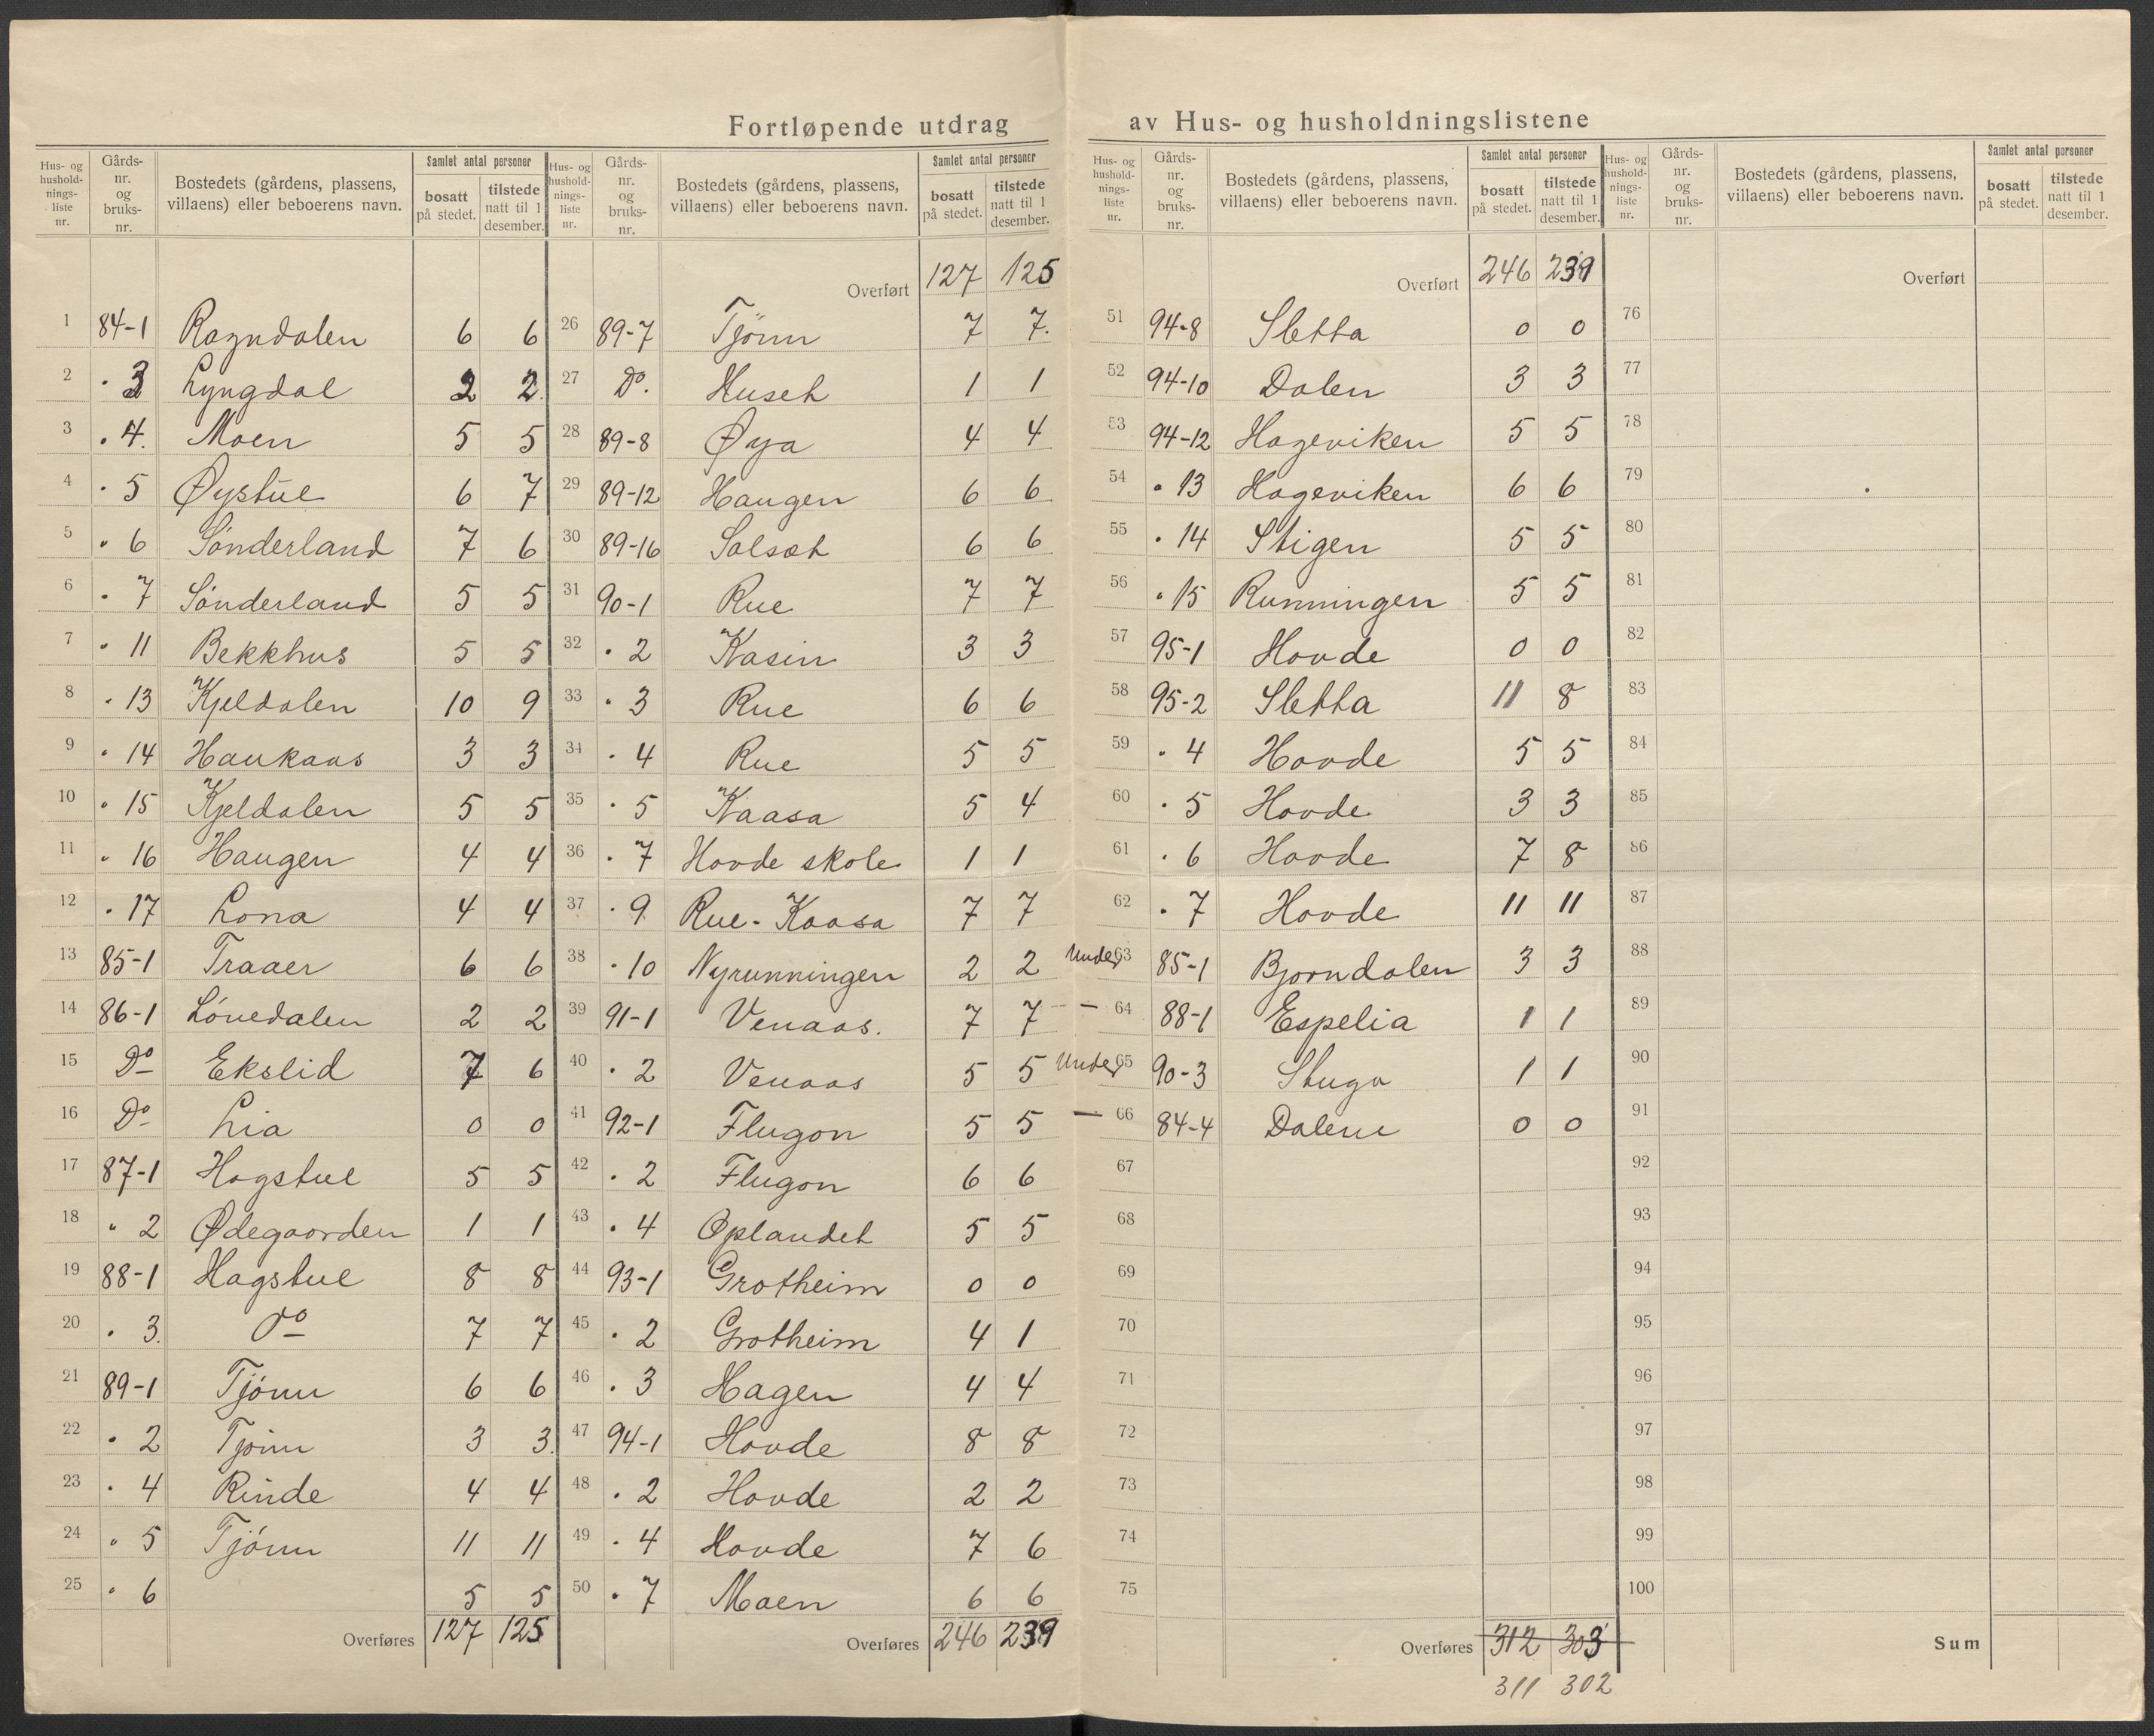 Fortløpende utdrag av Hus- og husholdningslistene
Hus- og husholdnings- liste nr. | Gårds- nr. og bruks- nr. | Bostedets (gårdens, plassens, villaens) eller beboerens navn. | Samlet antal personer | bosatt på stedet. | tilstede natt til 1 desember.
1 84-1 Ragndalen 6 6
2 " 3 Lyngdal 2 2
3 " 4. Moen 5 5
4 " 5 Øystul 6 7
5 " 6 Sønderland 7 6
6 " 7 Sønderland 5 5
7 " 11 Bekkhus 5 5
8 " 13 Kjeldalen 10 9
9 " 14 Haukaas 3 3
10 " 15 Kjeldalen 5 5
11 " 16 Haugen 4 4
12 " 17 Lona 4 4
13 85-1 Traaer 6 6
14 86-1 Lónedalen 2 2
15 Do Ekslid 7 6
16 Do Lia 0 0
17 87-1 Hogstul 5 5
18 " 2 Ødegaarden 1 1
19 88-1 Hogstul 8 8
20 " 3. Do 7 7
21 89-1 Tjónn 6 6
22 " 2 Tjónn 3 3.
23 " 4 Rinde 4 4
24 " 5 Tjónn 11 11
25 " 6 5 5
Overføres 127 125
Hus- og husholdnings- liste nr. | Gårds- nr. og bruks- nr. | Bostedets (gårdens, plassens, villaens) eller beboerens navn. | Samlet antal personer | bosatt på stedet. | tilstede natt til 1 desember.
Overført 127 125
26 89-7 Tjönn 7 7.
27 Do. Huset 1 1
28 89-8 Øya 4 4
29 89-12 Haugen 6 6
30 89-16 Solsət 6 6
31 90-1 Rue 7 7
32 " 2 Kasin 3 3
33 " 3 Rue 6 6
34 " 4 Rue 5 5
35 " 5 Kaasa 5 4
36 " 7 Hovde skole 1 1
37 " 9 Rue-Kaasa 7 7
38 " 10 Nyrunningen 2 2
39 91-1 Venaas. 7 7
40 " 2 Venaas 5 5
41 92-1 Flugon 5 5
42 " 2 Flugon 6 6
43 " 4 Oplandet 5 5
44 93-1 Grotheim 0 0
45 " 2 Grotheim 4 1
46 " 3 Hagen 4 4
47 94-1 Hovde 8 8
48 " 2 Hovde 2 2
49 " 4 Hovde 7 6
50 " 7 Moen 6 6
Overføres 246 239
Hus- og husholdnings- liste nr. | Gårds- nr. og bruks- nr. | Bostedets (gårdens, plassens, villaens) eller beboerens navn. | Samlet antal personer | bosatt på stedet. | tilstede natt til 1 desember.
Overført 246 239
51 94-8 Sletta 0 0
52 94-10 Dalen 3 3
53 94-12 Hageviken 5 5
54 " 13 Hageviken 6 6
55 " 14 Stigen 5 5
56 " 15 Runningen 5 5
57 95-1 Hovde 0 0
58 95-2 Sletta 11 8
59 " 4 Hovde 5 5
60 " 5 Hovde 3 3
61 " 6 Hovde 7 8
62 " 7 Hovde 11 11
Under 63 85-1 Bjorndalen 3 3
— 64 88-1 Espelia 1 1
Under 65 90-3 Stuga 1 1
— 66 84-4 Dalene 0 0
67
68
69
70
71
72
73
74
75
Overføres 312 303
311 302
Hus- og husholdnings- liste nr. | Gårds- nr. og bruks- nr. | Bostedets (gårdens, plassens, villaens) eller beboerens navn. | Samlet antal personer | bosatt på stedet. | tilstede natt til 1 desember.
Overført
76
77
78
79
80
81
82
83
84
85
86
87
88
89
90
91
92
93
94
95
96
97
98
99
100
Sum